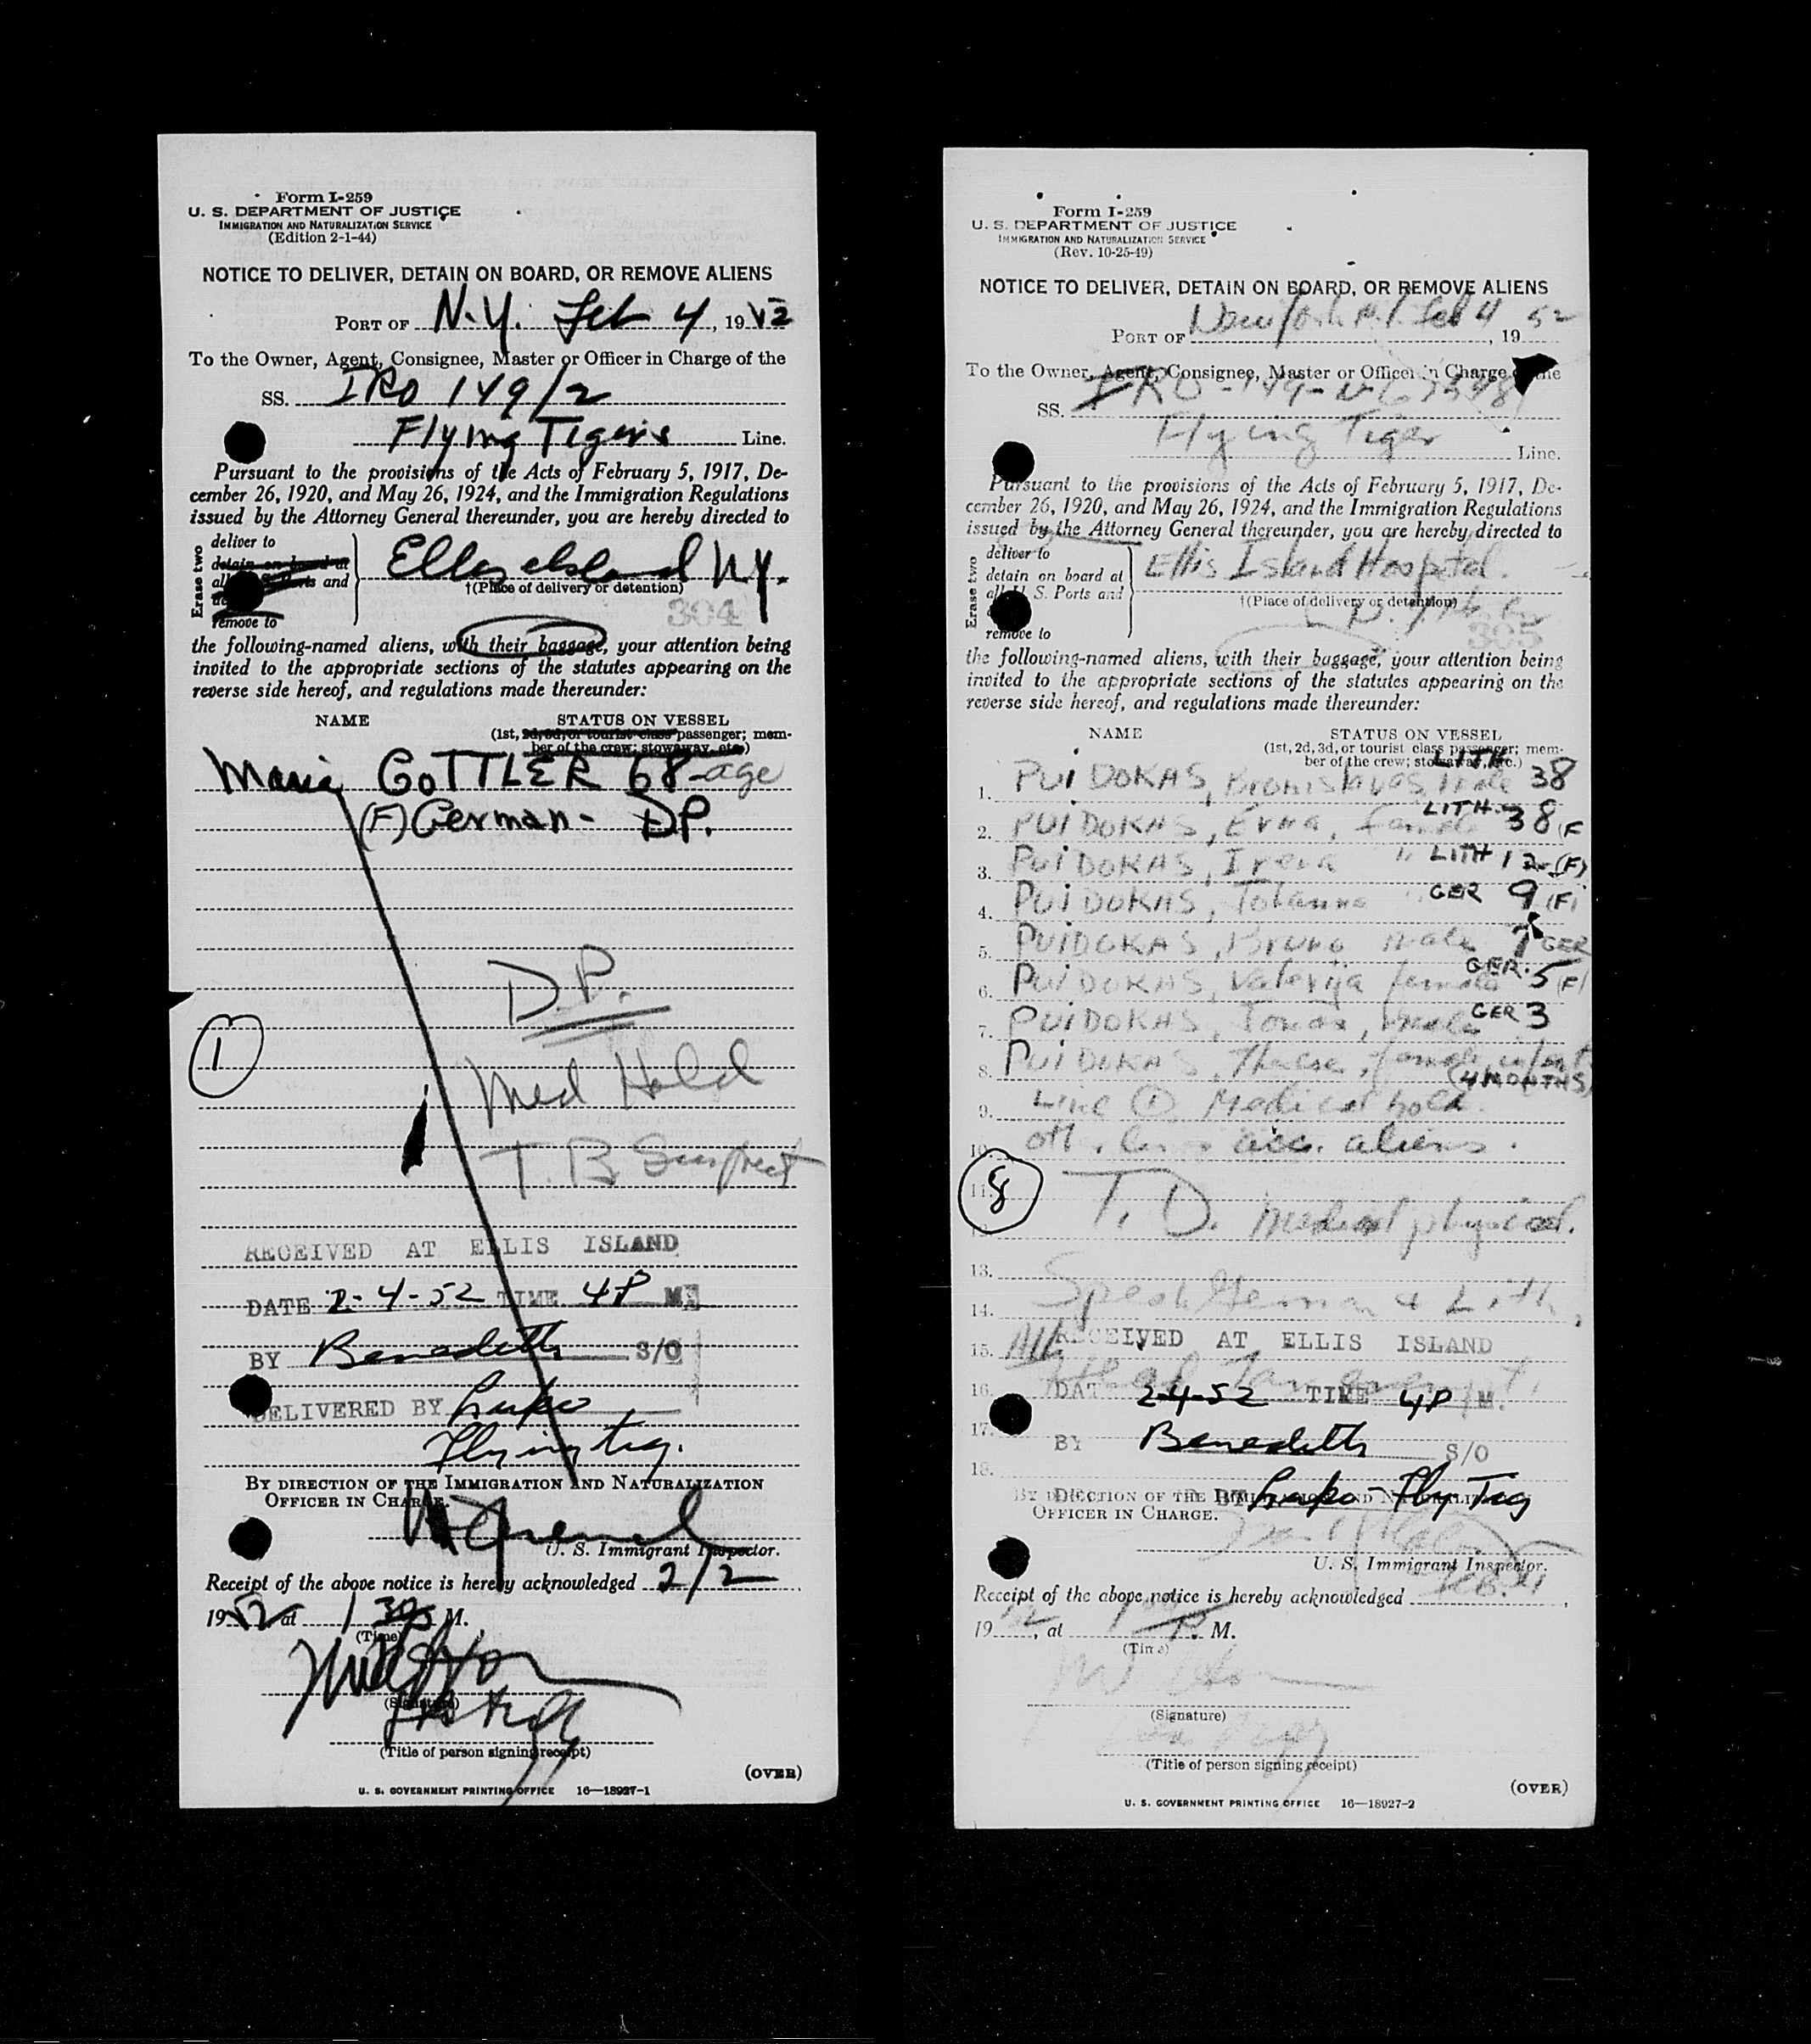 Form I-259
U. S. DEPARTMENT OF JUSTICE
IMMIGRATION AND NATURALIZATION SERVICE
(Edition 2-1-44)
NOTICE TO DELIVER, DETAIN ON BOARD, OR REMOVE ALIENS
PORT OF N.Y. Feb 4, 1952
To the Owner, Agent, Consignee, Master or Officer in Charge of the
SS. IRO 149/2
Flying Tigers Line.
Pursuant to the provisions of the Acts of February 5, 1917, De-
cember 26, 1920, and May 26, 1924, and the Immigration Regulations
issued by the Attorney General thereunder, you are hereby directed to
Erase two
deliver to
detain on board at
all U. S. Ports and
remove to
Ellis Island N.Y.
†(Place of delivery or detention)
304
the following-named aliens, with their baggage, your attention being
invited to the appropriate sections of the statutes appearing on the
reverse side hereof, and regulations made thereunder:
NAME STATUS ON VESSEL
(1st, 2d, 3d, or tourist class passenger; mem-
ber of the crew; stowaway, etc.)
Maria GOTTLER 68-age
(F) German- D.P.
D.P.
1
Med Hold
T.B Suspect
RECEIVED AT ELLIS ISLAND
DATE 2-4-52 TIME 4P M
BY Benedetto S/O
DELIVERED BY Lupo
Flying Tig.
BY DIRECTION OF THE IMMIGRATION AND NATURALIZATION
OFFICER IN CHARGE.
U. S. Immigrant Inspector.
Receipt of the above notice is hereby acknowledged 2/2
1952 at 1 30 M.
(Time)
(Signature)
(Title of person signing receipt)
(OVER)
U. S. GOVERNMENT PRINTING OFFICE 16—18927-1
Form I-259
U. S. DEPARTMENT OF JUSTICE
IMMIGRATION AND NATURALIZATION SERVICE
(Rev. 10-25-49)
NOTICE TO DELIVER, DETAIN ON BOARD, OR REMOVE ALIENS
PORT OF New York N.Y. Feb 4, 19 52
To the Owner, Agent, Consignee, Master or Officer in Charge of the
SS. IRO-149-
Flying Tiger Line.
Pursuant to the provisions of the Acts of February 5, 1917, De-
cember 26, 1920, and May 26, 1924, and the Immigration Regulations
issued by the Attorney General thereunder, you are hereby directed to
Erase two
deliver to
detain on board at
all U. S. Ports and
remove to
Ellis Island Hospital.
†(Place of delivery or detention)
305
the following-named aliens, with their baggage, your attention being
invited to the appropriate sections of the statutes appearing on the
reverse side hereof, and regulations made thereunder:
NAME STATUS ON VESSEL
(1st, 2d, 3d, or tourist class passenger; mem-
ber of the crew; stowaway, etc.)
1. PUIDOKAS, Bronislavas, male LITH 38
2. PUIDOKAS, Erna, female LITH. 38 (F
3. PUIDOKAS, Irena " LITH 12 (F)
4. PUIDOKAS, Johanna " GER 9 (F)
5. PUIDOKAS, Bruno male 7 GER
6. PUIDOKAS, Valerija female GER. 5 (F)
7. PUIDOKAS, Jonas, male GER 3
8. PUIDOKAS, Therese, female, infant
(4 MONTHS)
9. Line 1 Medical hold.
10. acc. aliens.
8
11. T.D. Medical physical.
12.
13.
14. Speak German & Lith.
15. All RECEIVED AT ELLIS ISLAND
16. DATE 2-4-52 TIME 4P M.
17. BY Benedetto S/O
18.
BY Lupo-Fly Tig
BY DIRECTION OF THE IMMIGRATION AND NATURALIZATION
OFFICER IN CHARGE.
U. S. Immigrant Inspector.
Receipt of the above notice is hereby acknowledged
19 52, at P. M.
(Time)
(Signature)
(Title of person signing receipt)
(OVER)
U. S. GOVERNMENT PRINTING OFFICE 16—18927-2